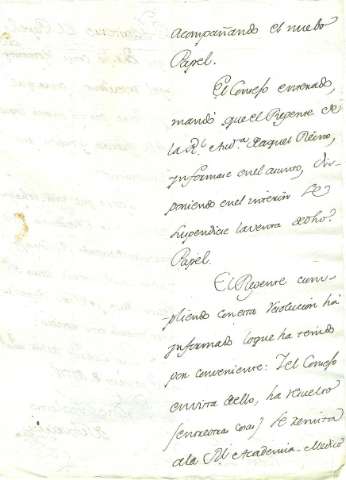 acompañando el nuebo
Papel.
El Consejo enterado,
mandó que el Regente de
la R.l Aud.a de aquel Reino,
ynformase en el asunto, dis-
poniendo en el interin se
suspendiese la venta de dho
Papel.
El Regente cum-
pliendo con esta resolucion ha
ynformado loque ha tenido
por conveniente: Y el Consejo
en vista de ello, ha resuelto
(entre otras cosas) se remita
a la R.l Academia-Medico